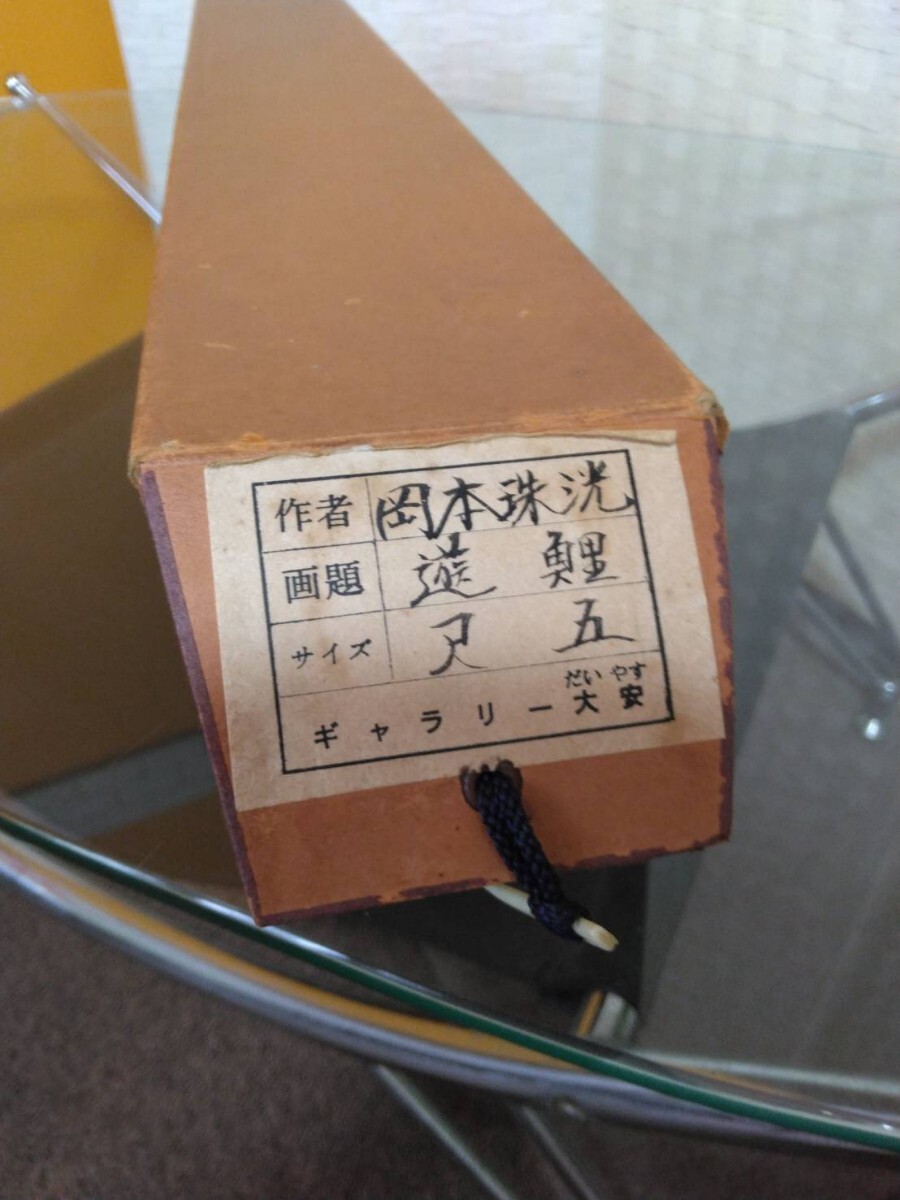 作者 岡本珠洸
画題 遊鯉
サイズ 尺五
だいやす
ギャラリー大安